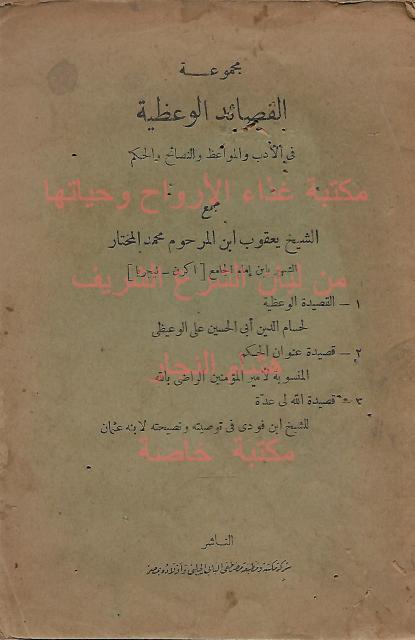 مجموعة
القصائد الوعظية
فى الأدب والمواعظ والنصائح والحكم
مكتبة غذاء الأرواح وحياتها
جمع
الشيخ يعقوب ابن المرحوم محمد المختار
الشهير بابن إمام الجامع
من لبان الشرع الشريف
١ – القصيدة الوعظية
لحسام الدين أبى الحسين على الوعيظى
٢ – قصيدة عنوان الحكم
هيثم النجار
المنسوبة لأمير المؤمنين الراضى بالله
٣ – قصيدة الله لى عدة
للشيخ ابن فودى فى توصيته ونصيحته لابنه عثمان
مكتبة خاصة
الناشر
شركة مكتبة ومطبعة مصطفى البابى الحلبى وأولاده بمصر